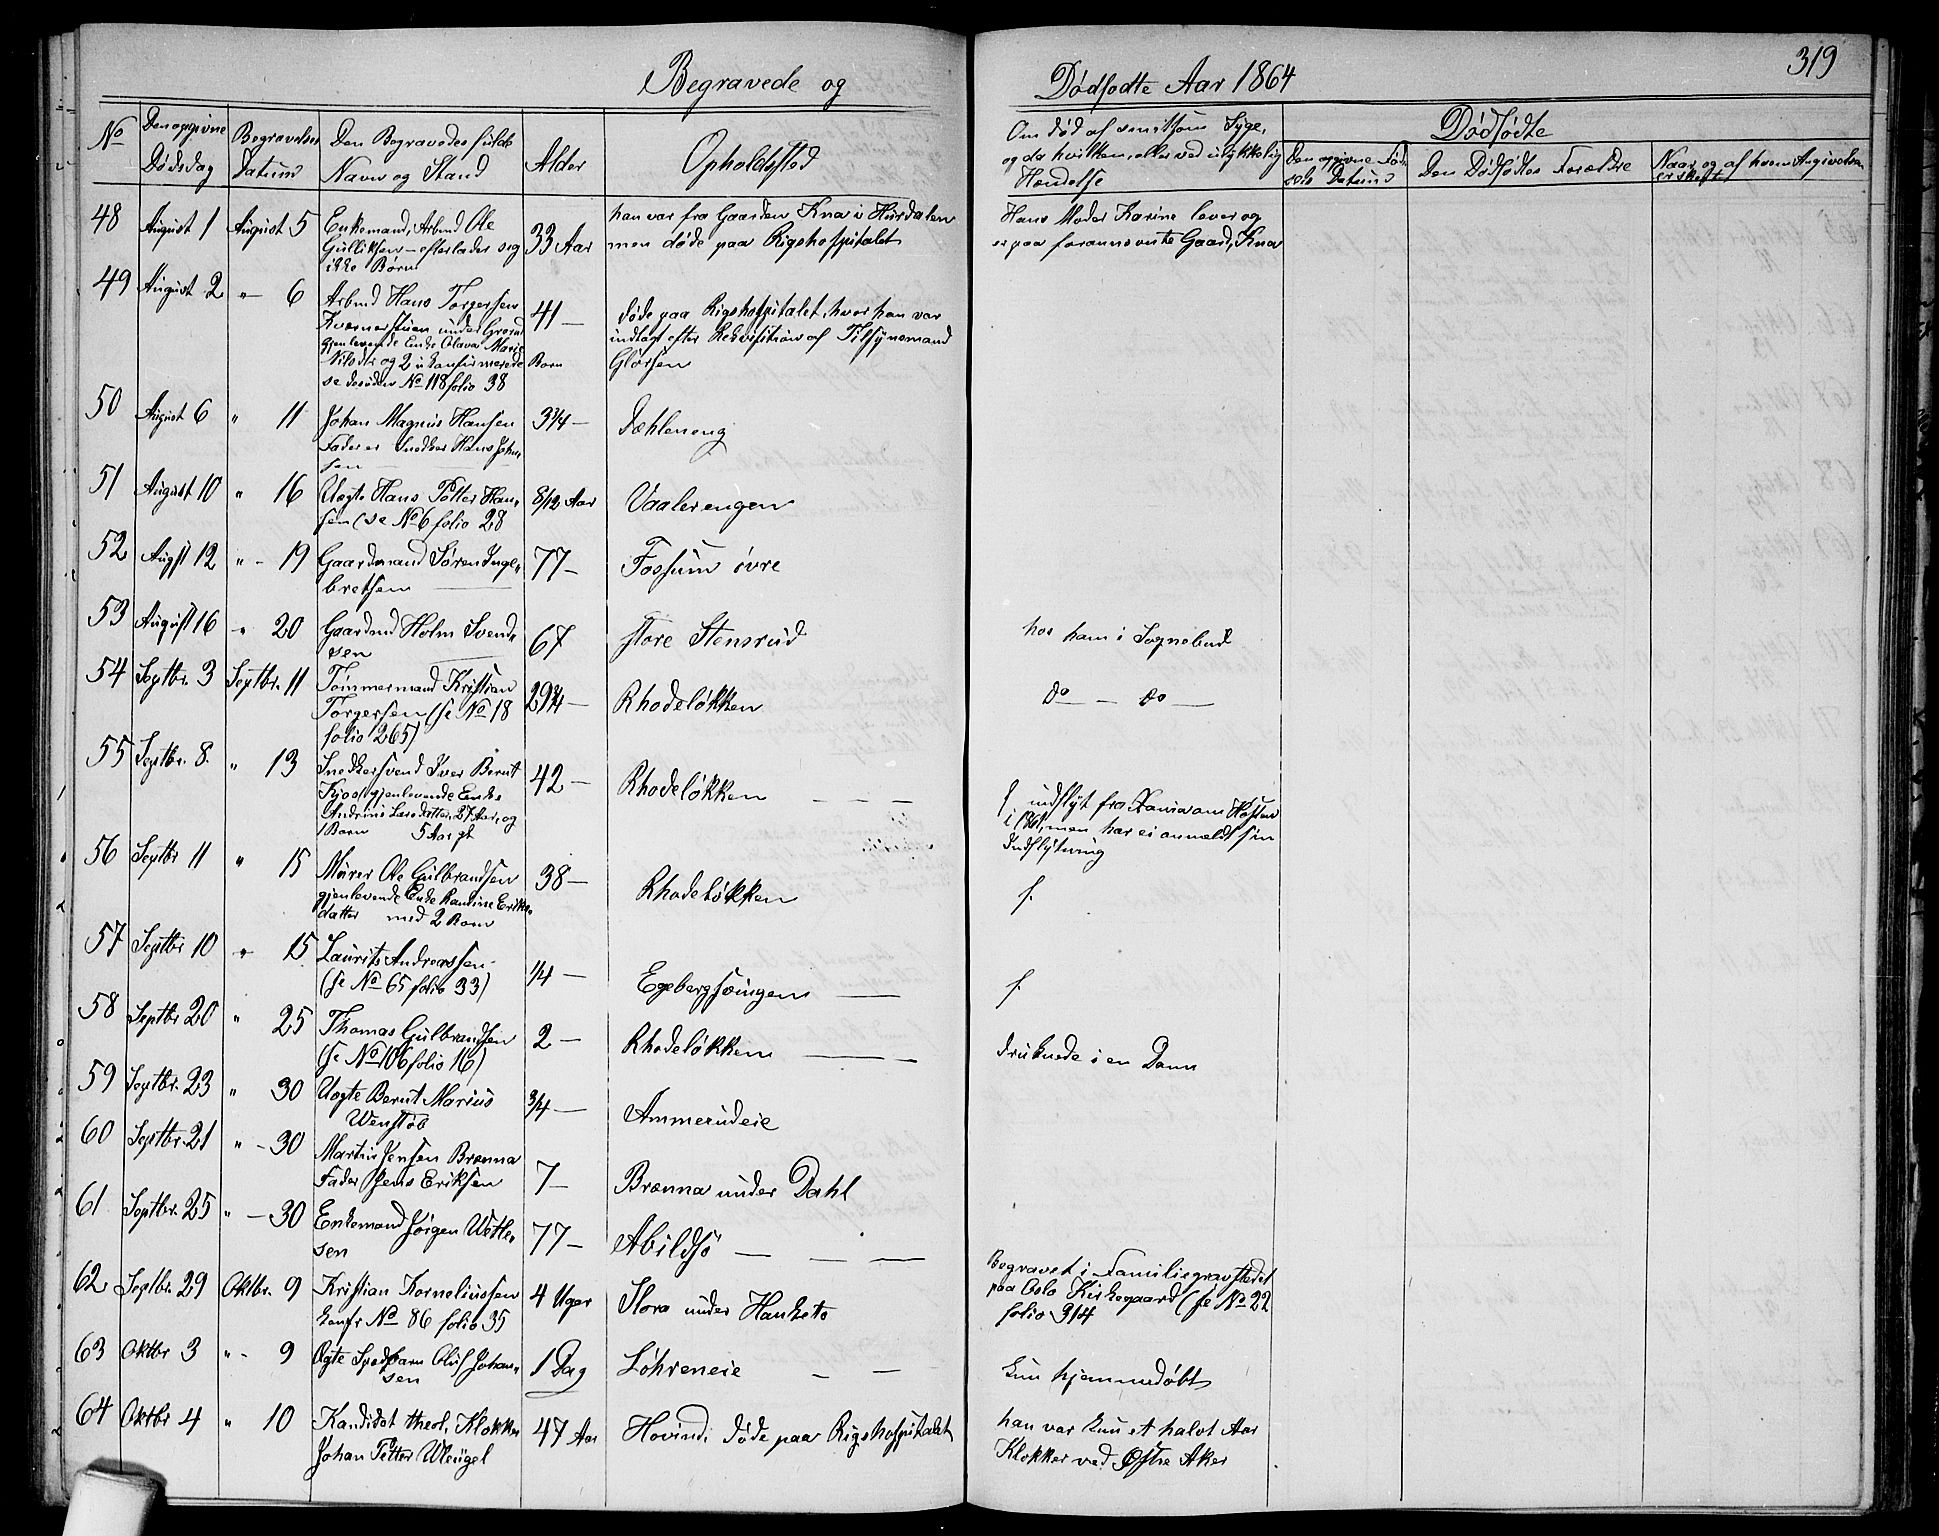 319
Begravede og Dødfødte Aar 1864
No
Den opgivne Dødsdag
Begravelses Datum
Den Begravedes fulde Navn og Stand
Alder
Opholdssted
Om død af smitsom Syge, og da hvilken, eller ved ulykkelig Hændelse
Dødfødte
Den opgivne Fødsels Datum
Den Dødfødtes Forældre
Naar og af hvem Angivelsen er skeet
48 August 1 August 5 Enkemand, Arbmd Ole
Gulliksen – efterlader sig
ikke Børn
33 Aar
han var fra Gaarden Knai Hurdalen
men døde paa Rigshospitalet
Hans Moder Karine lever og
er paa forannævnte Gaard, Kna
49 August 2 " – 6 Arbmd Hans Torgersen
Kværnerstuen under Grorud
gjenlevende Enke Olava Marie
Nilsdtr og 2 ukonfirmerede Born
se desuden No 118 folio 38
41 –
døde paa Rigshospitalet, hvor han var
indlagt efter Rekvisition af Tilsynsmand
Glørsen
50 August 6 " 11 Johan Magnus Hansen
Fader er Snedker Hans Johnsen
3 3/4 –
Dæhleneng
51 August 10 " 16 Uægte Hans Petter Hansen
(se No 6 folio 28
8/12 Aar
Vaalerengen
52 Augst 12 " – 19 Gaardmand Søren Ingebretsen
77 –
Fossum øvre
53 August 16 " 20 Gaardmd Holm Svendsen
67
store Stensrud
hos ham i Sognebud
54 Septbr. 3 Septbr. 11 Tømmermand Kristian
Torgersen (se No 18
folio 265)
29 3/4 –
Rhodeløkken
do – do –
55 Septbr. 8. " 13 Snedkersvend Iver Bernt
Kjos, gjenlevende Enke
Andrine Larsdatter, 27 Aar, og
1 Barn 5 Aar gl.
42 –
Rhodeløkken – – –
f indflyt fra Xania om Høsten
i 1861, men har ei anmeldt sin
Indflytning
56 Septbr 11 " 15 Murer Ole Gulbrandsen
gjenlevende Enke Randine Eriksdatter
med 2 Born
38 –
Rhodeløkken
f.
57 Septbr 10 " 15 Laurits Andreassen
(se No 65 folio 33)
1/4 –
Egebergsvingen –
f.
58 Septbr 20 " 25 Thomas Gulbrandsen
(se No 106 folio 16)
2 –
Rhodeløkken –
druknede i en Dam
59 Septbr. 23 " 30 Uægte Bernt Marius
Wenstøb
3/4 –
Ammerudeie
60 Septbr. 21 " – 30 Martin Jensen Brænna
Fader Jens Eriksen
7 –
Brænna under Dahl
61 Septbr. 25 " – 30 Enkemand Jørgen Wetlesen
77 –
Abildsø – – –
62 Septbr. 29 Oktbr. 9 Kristian Korneliussen
konfr No 86 folio 35
4 Uger
Slora under Hauketo
Begravet i Familiegravstedet
paa Oslo Kirkegaard (se No 22
folio 314
63 Oktbr 3 " – 9 Ægte Spædbarn Oluf Johansen
1 Dag
Løhreneie – –
kun hjemmedøbt
64 Oktbr 4 " 10 Kandidat theol. Klokker
Johan Petter Wleügel
47 Aar
Hovind, døde paa Rigshospitalet
han var kun et halvt Aar
Klokker ved Østre Aker